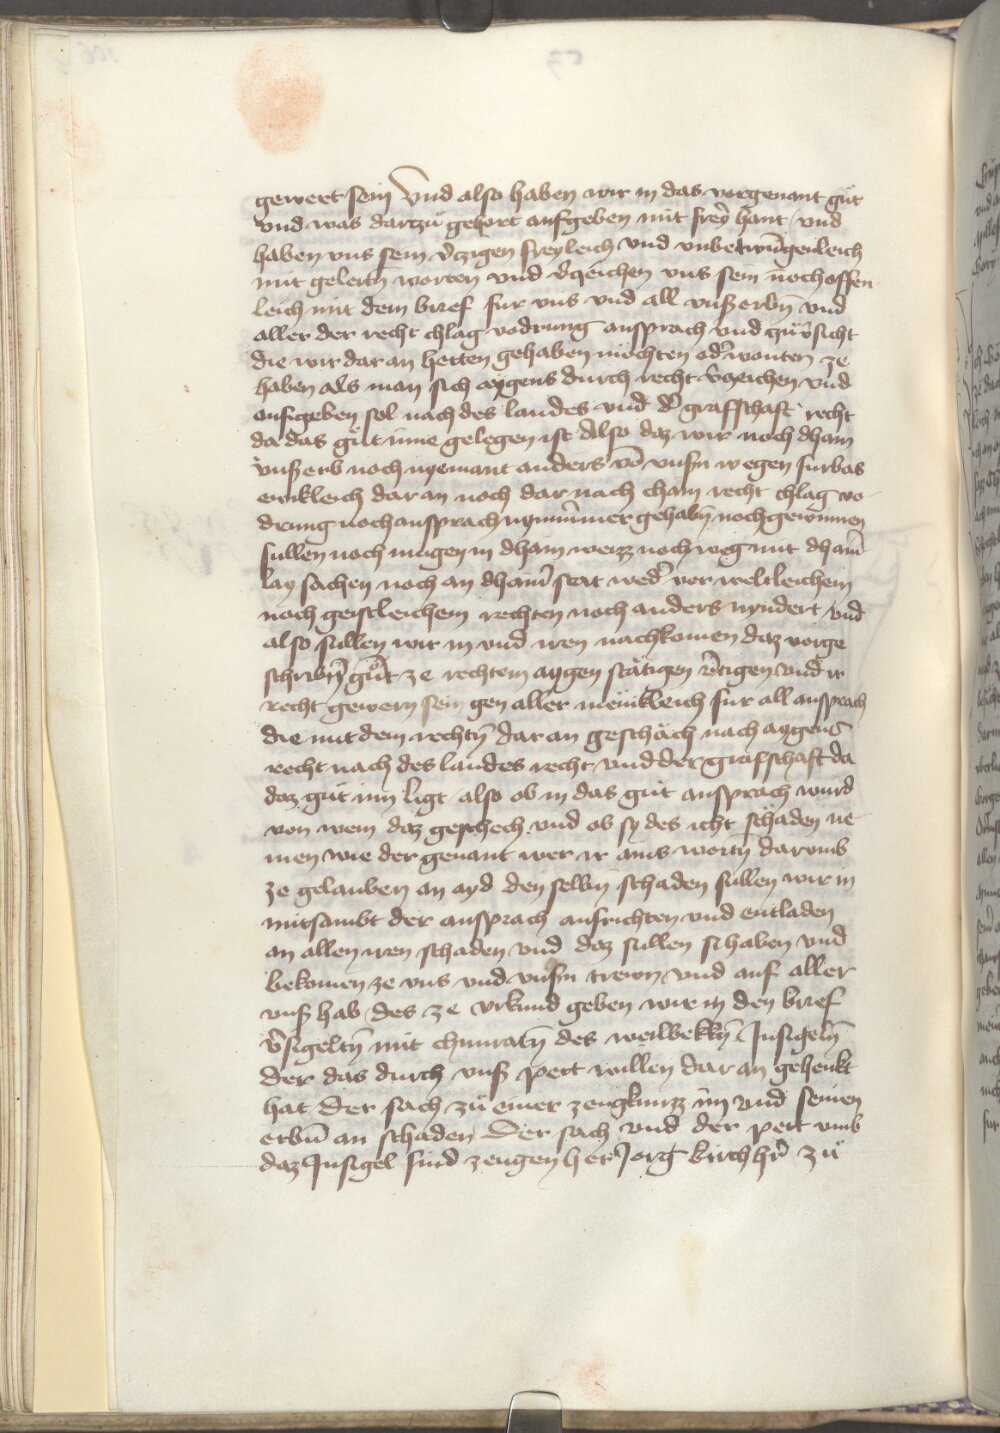 gewert sein Vnd also haben wir in das vorgenant güt
vnd was dartzü gehort aufgeben mit freÿ hant / vnd
haben vns sein v̄czigen freyleich vnd vnbetwūgenleich
mit gelertn̄ worten vnd v̄czeichen vns sein noch offen
leich mit dem brief fur vns vnd all vnß erbn̄ vnd
aller der recht chlag vodrung anspprach vnd zův̄sicht
die wir daran hetten gehaben möchten od̄ wonten ze
haben als man sich aygens durch recht v̄czeichen vnd
aufgeben sol nach des landes vnd d̄ grafschaft recht
da das gůt inne gelegen ist Also daz wir noch dham
vnß erb noch nyemant anders vō vnsn̄ wegen furbas
ewikleich daran noch darnach cham recht chlag vo
drung noch ansprach nymm̄mer gehabn̄ noch gewinnen
sullen noch mugen in dham weizz noch weg mit dham̄
lay sachen noch an dham̄ stat wed̄ vor weltleichem
noch geistleichem rechten noch anders nyndert / vnd
also sullen wir in vnd iren nachkomen daz vorge
schribn̄ gůt ze rechtem aygen stätigen v̄tigen vnd ir
recht gewern sein gen aller meinkleich fur all ansprach
die mit dem rechtn̄ daran geschäch nach aygens
recht nach des landes recht vnd der grafschaft da
daz gůt inn ligt also ob in das gůt ansprach wurd
von wem daz geschech vnd ob sy des icht schäden ne
men wie der genant wer ir ains wortn̄ darumb
ze gelauben an ayd den selbn̄ schaden sullen wir in
mitsambt der ansprach aufrichten vnd entladen
an allen iren schaden vnd daz sullen si haben vnd
bekomen ze vns vnd vnsn̄ trewn vnd auf aller
vnß hab / des ze vrkund geben wir in den brief
v̄sigeltn̄ mit chunratn̄ des weilbekkn̄ Insigeln̄
der das durch vnß pett willen daran gehenkt
hat der sach zů einer zeugknuzz im vnd seinen
erbn̄ an schaden Der sach vnd der pett vmb
daz Insigel sind zeugen her Jorg kirchh̄r zů